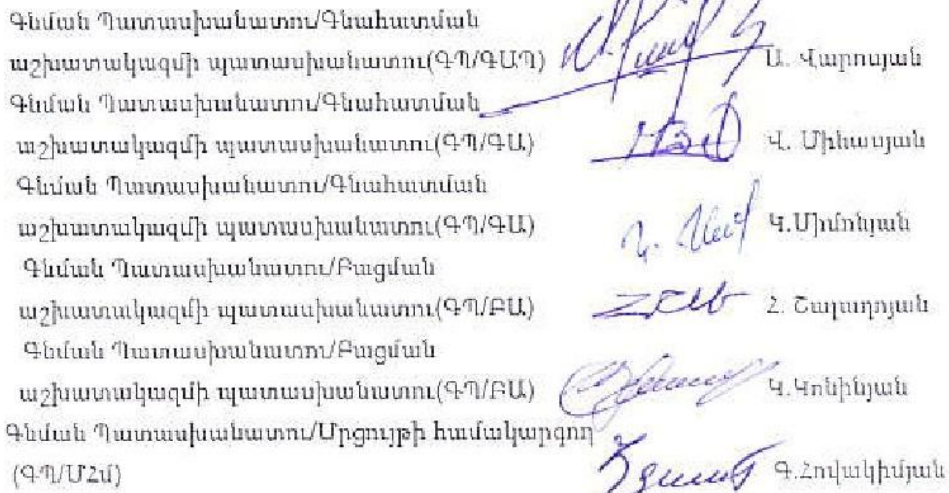 Գնման Պատասխանատու/Գնահատման
աշխատակազմի պատասխանատու(ԳՊ/ԳԱՊ) Ա. Վարոսյան
Գնման Պատասխանատու/Գնահատման
աշխատակազմի պատասխանատու(ԳՊ/ԳԱ) Վ. Միհասյան
Գնման Պատասխանատու/Գնահատման
աշխատակազմի պատասխանատու(ԳՊ/ԳԱ) Կ.Սիմոնյան
Գնման Պատասխանատու/Բացման
աշխատակազմի պատասխանատու(ԳՊ/ԲԱ) Հ. Շաղաղոյան
Գնման Պատասխանատու/Բացման
աշխատակազմի պատասխանատու(ԳՊ/ԲԱ) Կ.Կոնինյան
Գնման Պատասխանատու/Մրցույթի համակարգող
(ԳՊ/ՄՀմ) Գ.Հովակիմյան